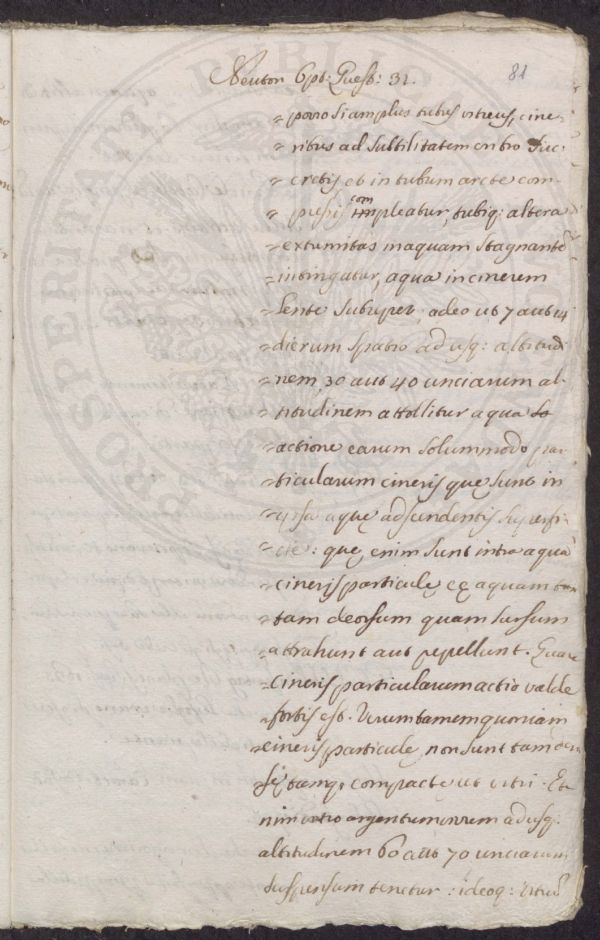 Neuton Opt: Quest: 31.
81
= porro si amplus tubus vitreus, cine
= ribus ad subtilitatem cribro suc
= cretis et in tubum arcte com=
= pressis com impleatur, tubiq: altera
= extrumitas in aquam stagnante
= intingatur, aqua in cinerem
lente subrepet, adeo ut 7 aut 14
= dierum spatio ad usq: altitud
= nem 30 aut 40 unciarum al-
= titudinem attollitur aqua
= actione earum solummodo par
= ticularum cineris que sunt in
= ipsa aquę adscendentis superfi
= cie: quę enim sunt intra aqua
= cineris particulę eę aquam tan
tam deorsum quam sursum
= attrahunt aut repellunt. Quare
= cineris particularum actio valde
= fortis est. Verumtamen quoniam
= cineris particulę non sunt tam den
sę tamq; compactę ut vitri. Et
nim vitro argentum vivum ad usq:
altitudinem 60 aut 70 unciarum
suspensum tenetur: ideoq: virtus